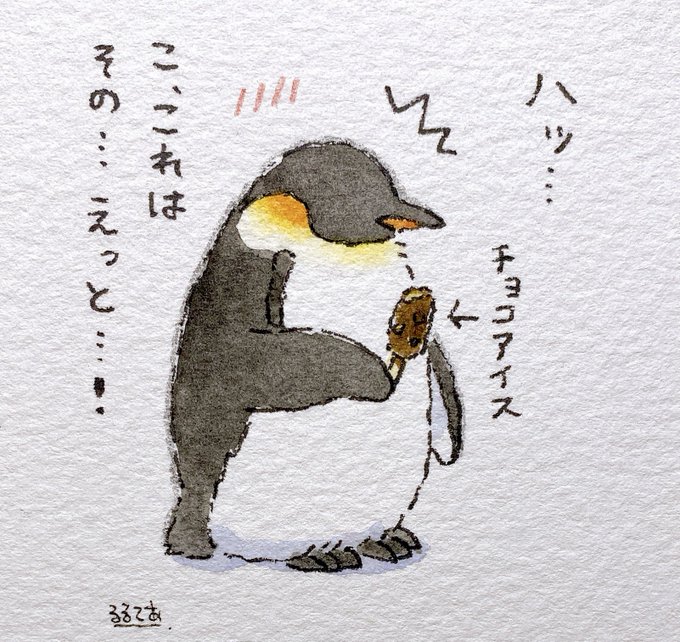 ハッ…
チョコアイス
こ、これは
その… えっと…!
るるてあ